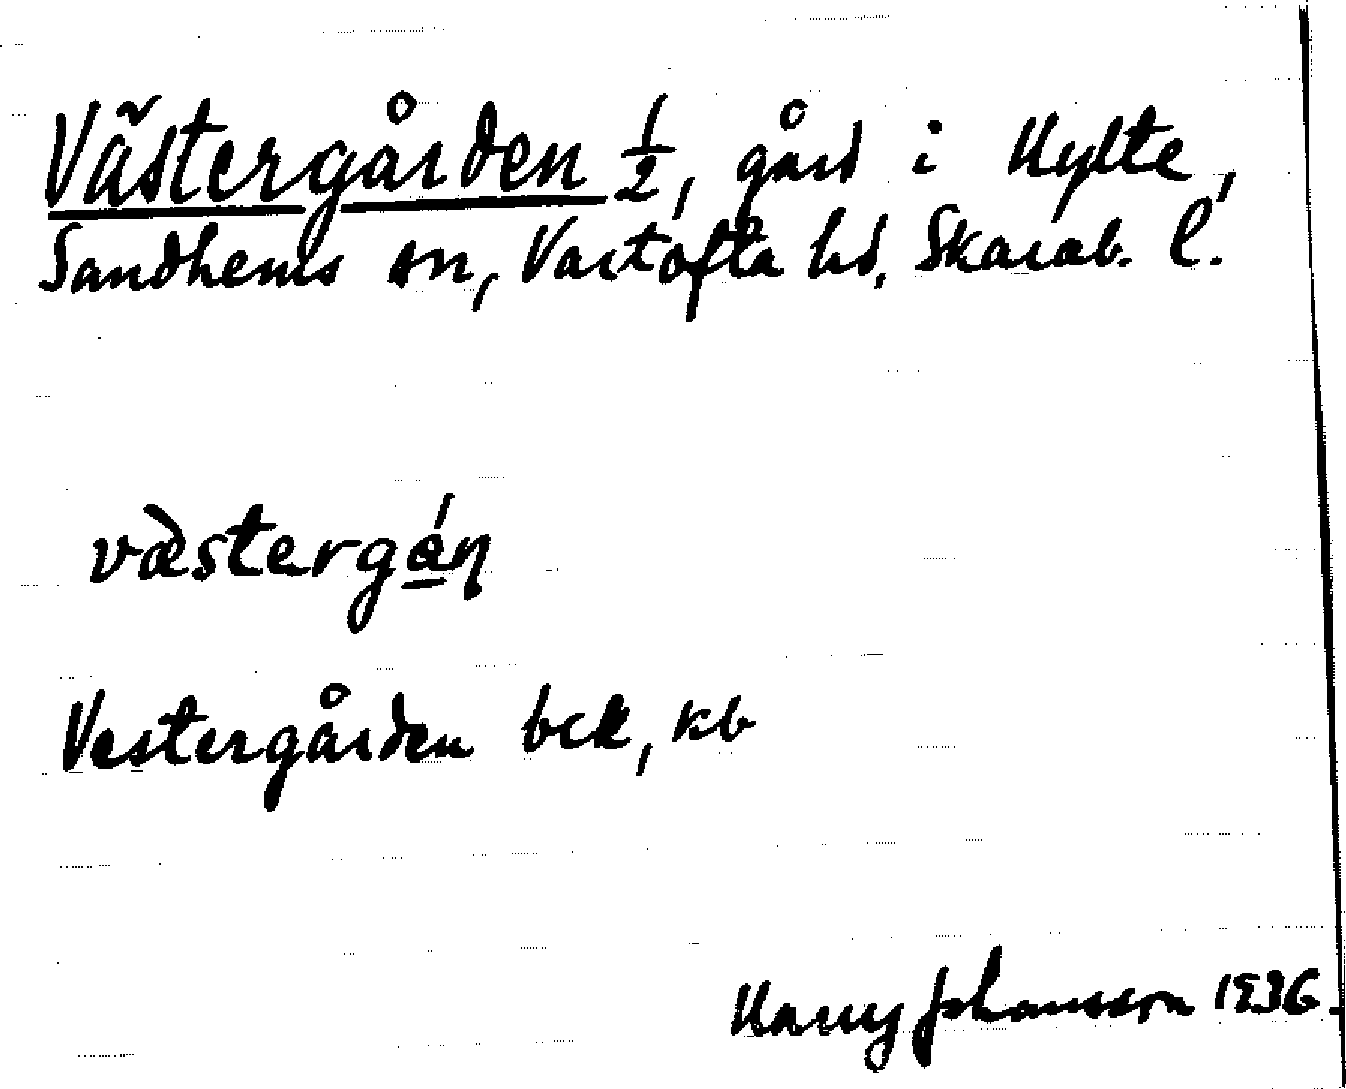 Västergården 1/2, gård i Hylte,
Sandhems sn, Vartofta hd. Skarab. l.
våstergán
Vestergården bck, kb
Harry Johansson 1936.